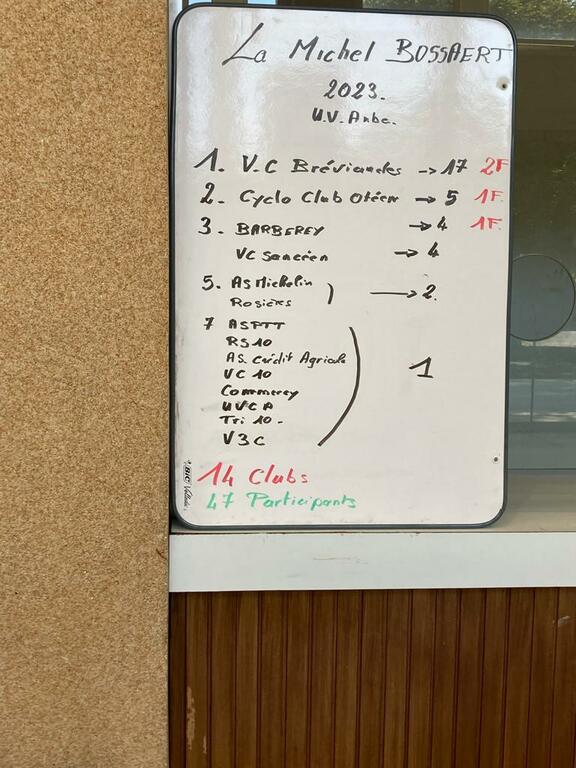 La Michel BOSSAERT
2023.
U.V. Aube.
1. V.C Bréviandes → 17 2F
2. Cyclo Club Otéen → 5 1F.
3. BARBEREY → 4 1F.
VC Sancéen → 4
5. AS Michelin
Rosières ) → 2.
7 ASPTT
RS10
AS. Crédit Agricole
VC 10 1
Commercy
UVCA
Tri 10 -
V3C
14 Clubs
47 Participants
BIC Velleda